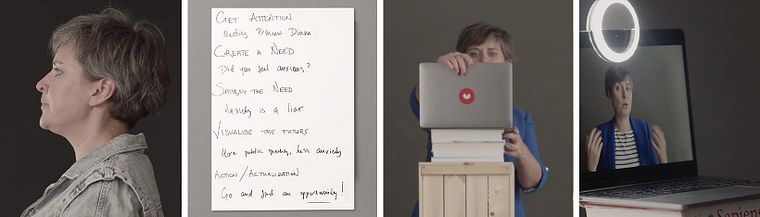 GET ATTENTION
Identify Problem
CREATE A NEED
Did you feel anxious?
SATISFY THE NEED
Anxiety is a liar
VISUALIZE THE FUTURE
More public speaking, less anxiety
ACTION/ACTUALIZATION
Go and find an opportunity!
Sapiens